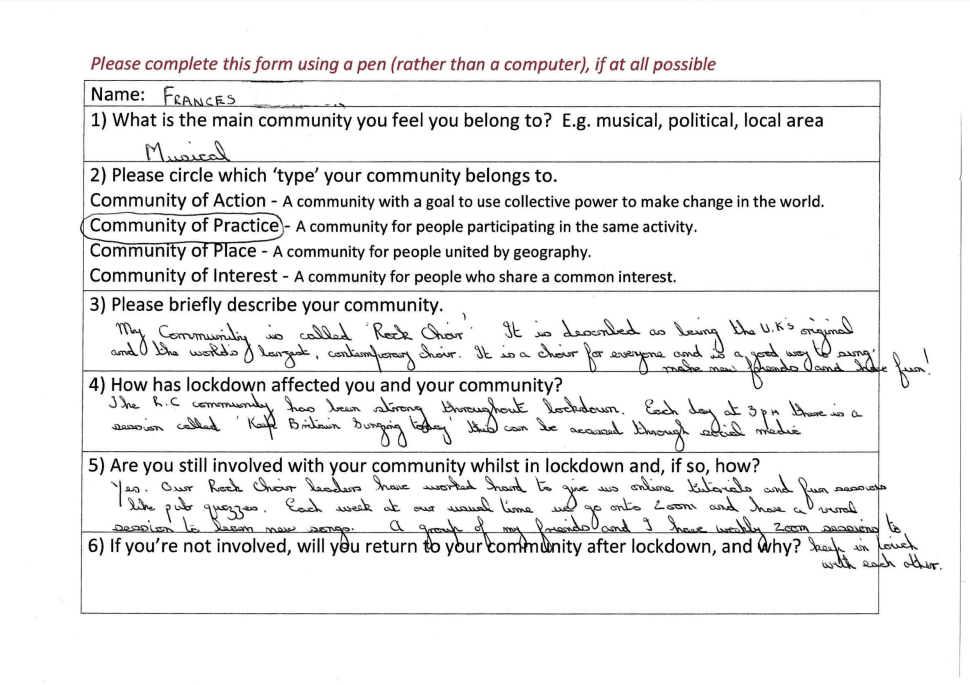 Please complete this form using a pen (rather than a computer), if at all possible
Name: FRANCES
1) What is the main community you feel you belong to? E.g. musical, political, local area
Musical
2) Please circle which 'type' your community belongs to.
Community of Action - A community with a goal to use collective power to make change in the world.
Community of Practice - A community for people participating in the same activity.
Community of Place - A community for people united by geography.
Community of Interest - A community for people who share a common interest.
3) Please briefly describe your community.
My Community is called 'Rock Choir' It is described as being the U.K's original
and the world's largest, contemporary choir. It is a choir for everyone and is a good way to sing,
make new friends and have fun!
4) How has lockdown affected you and your community?
The R.C community has been strong throughout lockdown. Each day at 3pm there is a
session called 'Keep Britain Singing today' this can be accessed through social media
5) Are you still involved with your community whilst in lockdown and, if so, how?
Yes. Our Rock Choir leaders have worked hard to give us online tutorials and fun sessions
like pub quizzes. Each week at our usual time we go onto Zoom and have a
session to learn new songs. A group of my friends and I have weekly Zoom sessions to
keep in touch
with each other.
6) If you're not involved, will you return to your community after lockdown, and why?